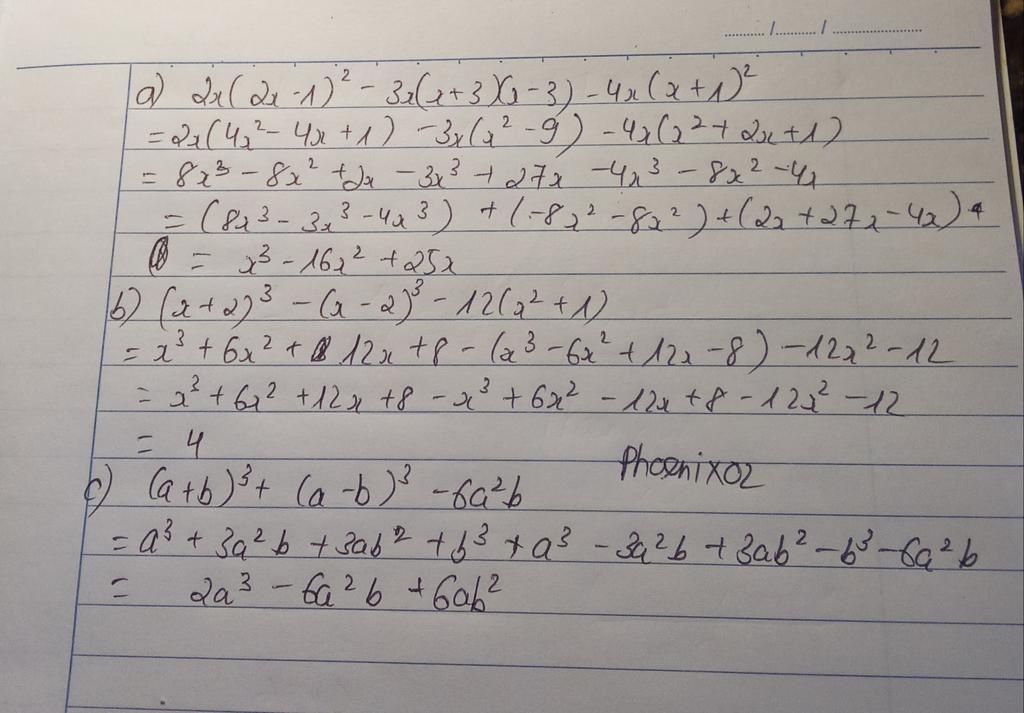 ............/............/............................
a) 2x(2x-1)² - 3x(x+3)(x-3) - 4x(x+1)²
= 2x(4x² - 4x + 1) - 3x(x² - 9) - 4x(x² + 2x + 1)
= 8x³ - 8x² + 2x - 3x³ + 27x - 4x³ - 8x² - 4x
= (8x³ - 3x³ - 4x³) + (-8x² - 8x²) + (2x + 27x - 4x)
= x³ - 16x² + 25x
b) (x+2)³ - (x-2)³ - 12(x² + 1)
= x³ + 6x² + 12x + 8 - (x³ - 6x² + 12x - 8) - 12x² - 12
= x³ + 6x² + 12x + 8 - x³ + 6x² - 12x + 8 - 12x² - 12
= 4
Phoenix02
c) (a+b)³ + (a-b)³ - 6a²b
= a³ + 3a²b + 3ab² + b³ + a³ - 3a²b + 3ab² - b³ - 6a²b
= 2a³ - 6a²b + 6ab²